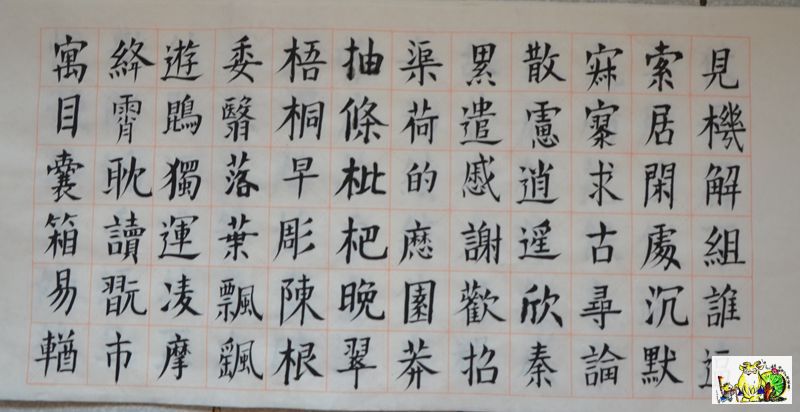 見機解組誰
索居閑處沉默
寂寥求古尋論
散慮逍遥欣秦
累遣慼謝歡招
渠荷的歷園莽
抽條枇杷晚翠
梧桐早彫陳根
委翳落葉飄飖
遊鵾獨運凌摩
絳霄耽讀翫市
寓目囊箱易輶